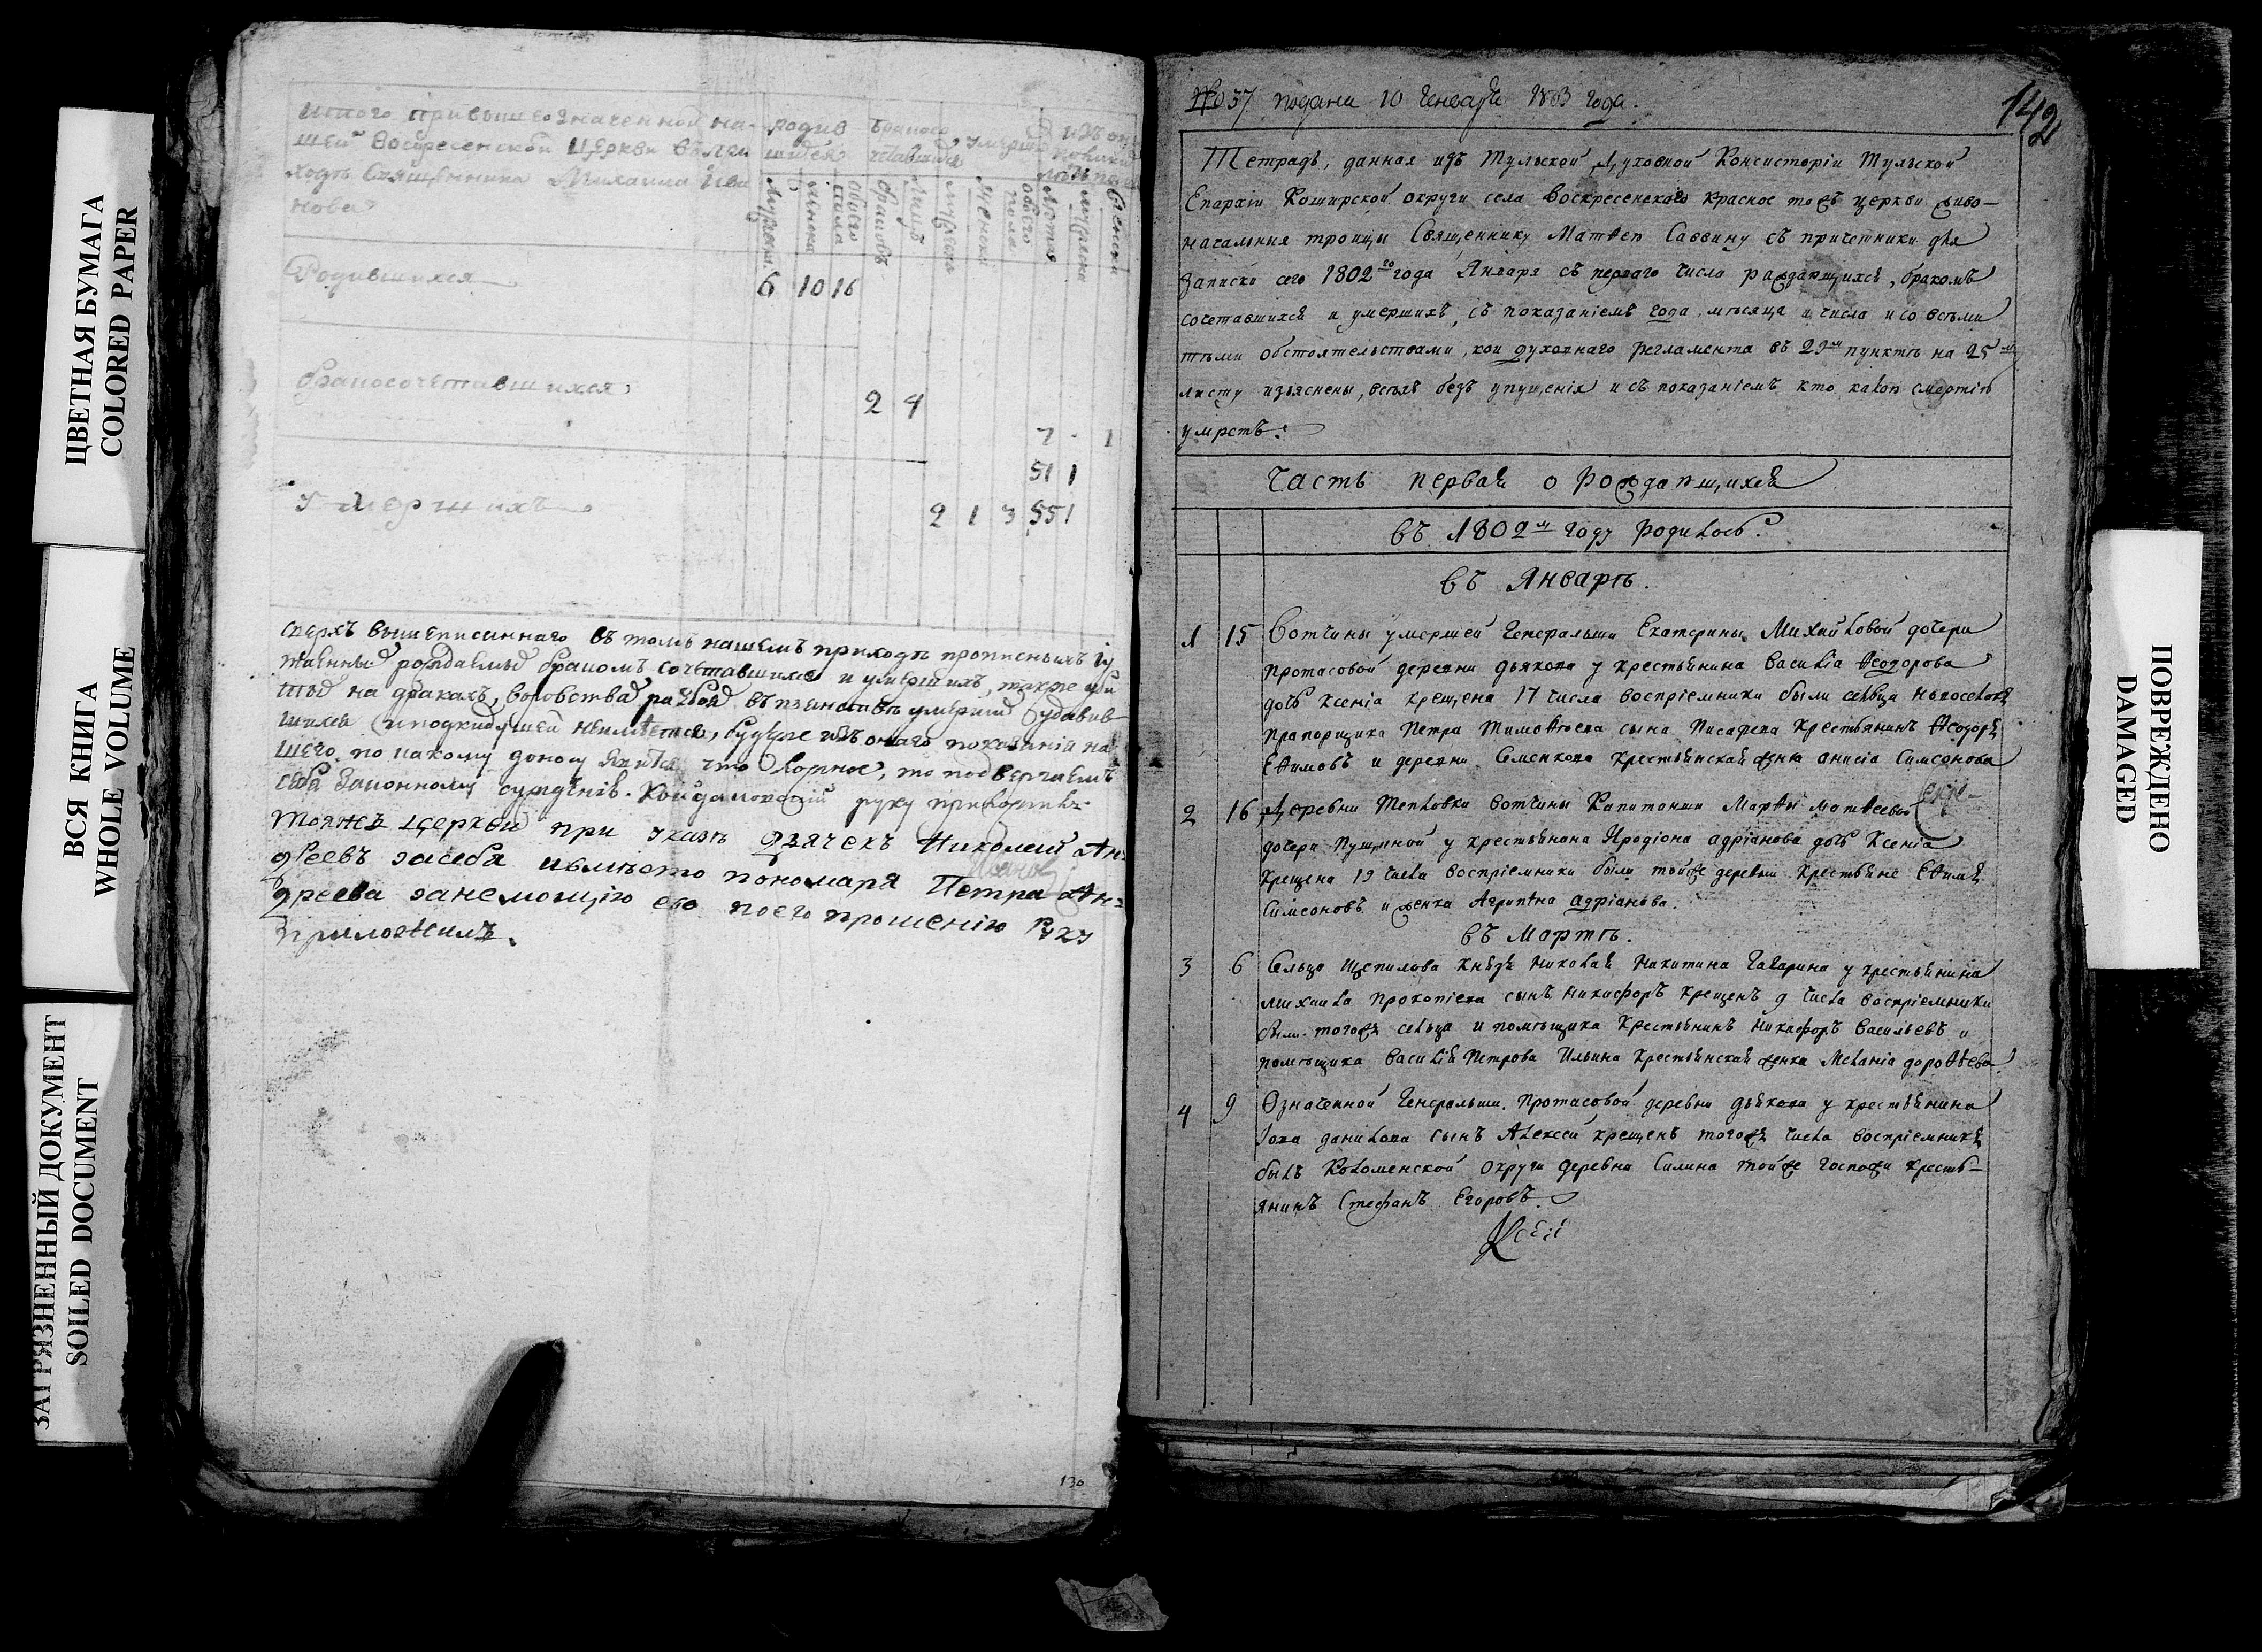 ЦВЕТНАЯ БУМАГА
COLORED PAPER
ВСЯ КНИГА
WHOLE VOLUME
ЗАГРЯЗНЕННЫЙ ДОКУМЕНТ
SOILED DOCUMENT
итого при вышеозначенной на-
шей Воскресенской Церкви въ при
ходѣ Священника Михаила Ива
нова
родив
шихся
бракосо
четавшихся
умерш
Родившихся
6 10 16
бракосочетавшихся
2 4
7 - 1
51 1
Умершихъ
2 1 3 551
сверхъ вышеписаннаго въ томъ нашемъ приходѣ прописныхъ
рождаемыхъ бракомъ сочетавшихся и умершихъ, также уби
тыхъ на дракахъ, воровства разбоя въ пьянствѣ умершихъ удавив
шихся и подкидышей неимѣется, будуже изъ онаго показанія на
шего по какому доносу явится что ложное, то подвергаемъ
себя законному сужденію. руку приложилъ
тояжъ церкви при указѣ дьячекъ Николай Ан=
дреевъ засебя ивмѣсто пономаря Петра Ан=
дреева занемощію его поего прошенію Руку
приложилъ.
130
№ 37 подана 10 Генваря 1803 года.
142
Тетрадь, данная изъ Тульской Духовной Консисторіи Тульской
Епархіи Коширской округи села Воскресенскаго Красное тожъ церкви живо-
начальныя троицы Священнику Матѳею Саввину съ причетники для
записки сего 1802го года Января съ перваго числа рождающихся, бракомъ
сочетавшихся и умершихъ, съ показаніемъ года, мѣсяца и числа и со всѣми
тѣми обстоятельствами, кои духовнаго регламента въ 29м пунктѣ на 25м
листу изъяснены, всѣхъ безъ упущенія и съ показаніемъ кто какою смертію
умретъ.
Часть первая о рождающихся
въ 1802м году родилось.
въ Январѣ.
1 15 Вотчины умершей Генеральши Екатерины Михайловой дочери
протасовой деревни дьякова у крестьянина Василіа Ѳеодорова
дочь Ксеніа крещена 17 числа воспріемники были сельца Новоселокъ
прапорщика Петра Тимоѳеева сына Писарева крестьянинъ Ѳеодоръ
Еѳимовъ и деревни Семенкова крестьянская жонка анисіа Симеонова
2 16 Деревни Тепловки вотчины Капитанши Марѳы Матѳеевой
дочери Пущиной у крестьянина Иродіона адріанова дочь Ксеніа
крещена 19 числа воспріемники были тойже деревни крестьяне Еѳимъ
Симеоновъ и жонка Агрипѳна адріанова.
въ Мартѣ.
3 6 Сельца Щепилова Князя Николая Никитина Гагарина у крестьянина
михаила прокопіева сынъ Никифоръ крещенъ 9 числа воспріемники
были тогожъ сельца и помѣщика крестьянинъ Никифоръ Васильевъ и
помѣщика Василія Петрова Ильина крестьянская жонка Меланіа дороѳеева
4 9 Означенной Генеральши Протасовой деревни дьякова у крестьянина
Іова данилова сынъ Алексей крещенъ тогожъ числа воспріемникъ
былъ Коломенской округи деревни Силина тойже госпожи кресть-
янинъ Стефанъ Егоровъ.
ПОВРЕЖДЕНО
DAMAGED